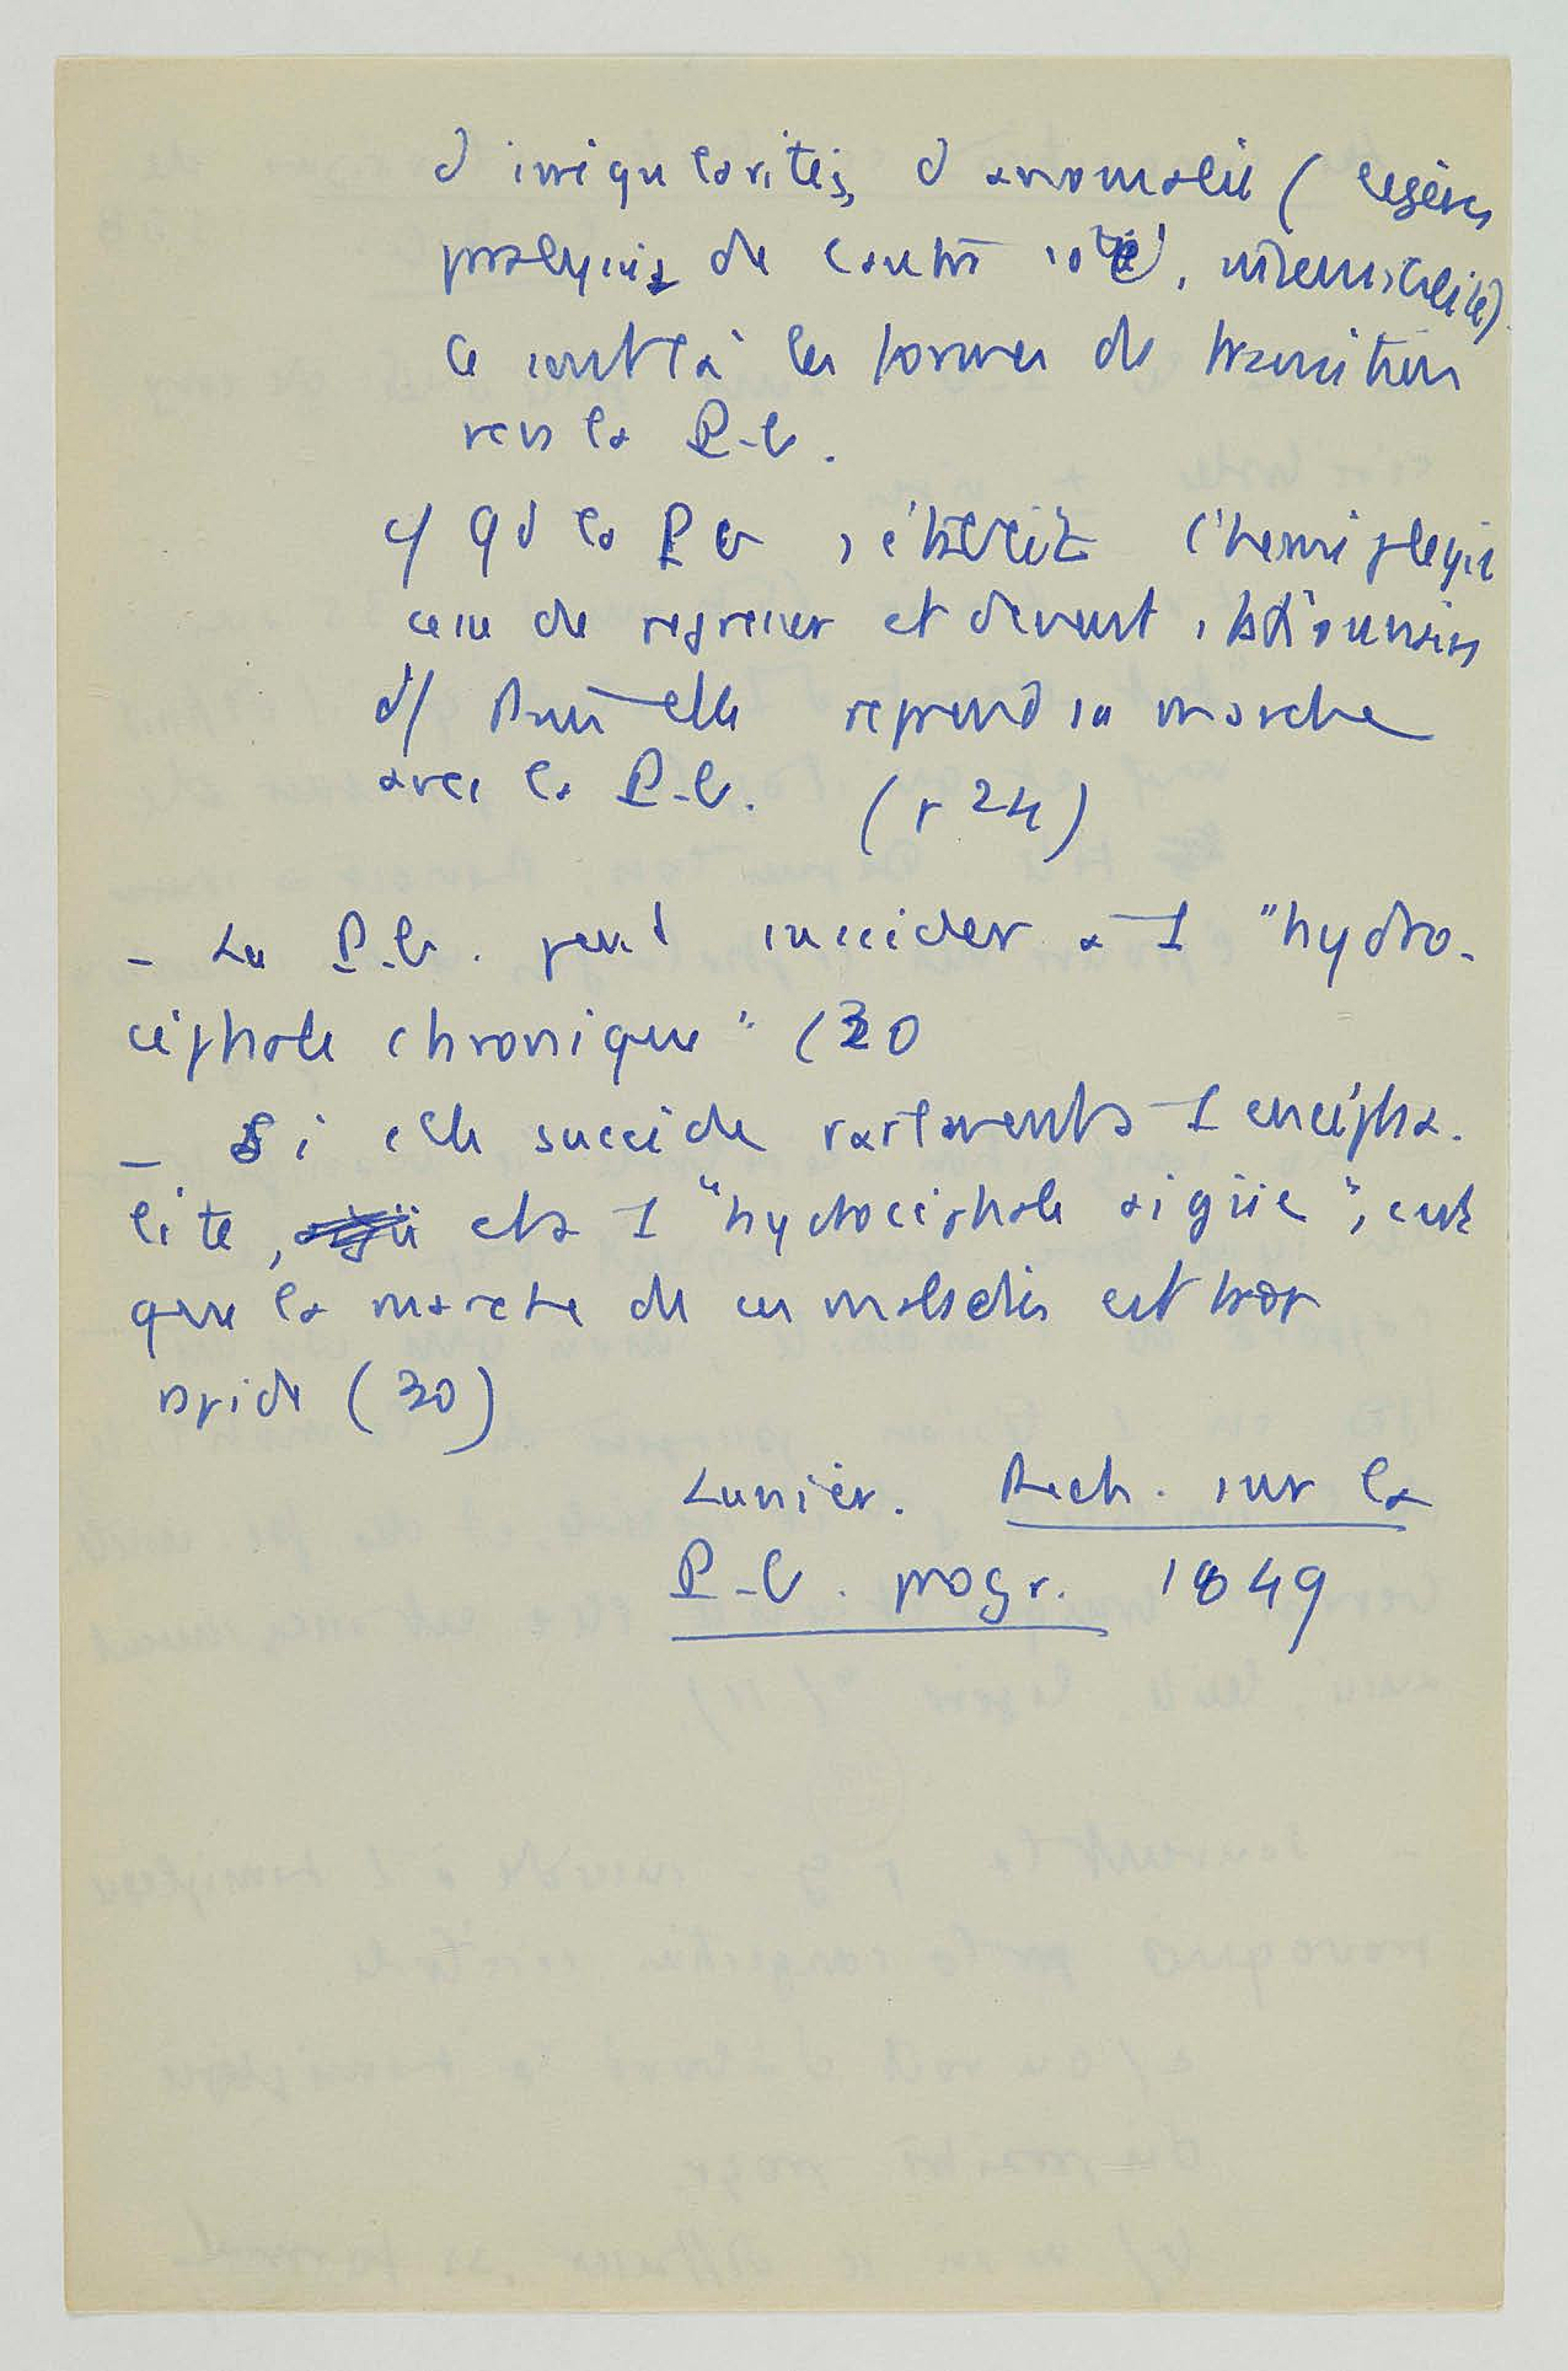 d'irrégularités, d'anomalie (légères
paralysies de l'autre côté,
ce sont là les formes de transition
vers la P-G.
c/ Qd la PG s'établit l'hémiplégie
cesse de régresser et devient stationnaire
d/ Puis elle reprend sa marche
avec la P-G. (p 24)
- La P.G. peut succéder à 1 "hydro-
céphale chronique" (30
- Si elle succède rarement à 1 encépha-
lite, et à 1 "hydrocéphale aigüe", c'est
que la marche de ces maladies est trop
rapide (30)
Lunier. Rech. sur la
P-G. progr. 1849